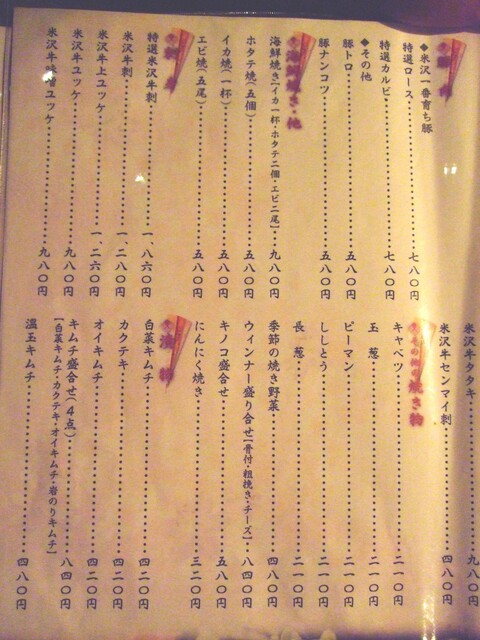 豚肉
◆米沢一番育ち豚
特選ロース 七八〇円
特選カルビ 七八〇円
◆その他
豚トロ 五八〇円
豚ナンコツ 五八〇円
海鮮焼き・他
海鮮焼き[イカ一杯・ホタテ二個・エビ二尾] 九八〇円
ホタテ焼(五個) 五八〇円
イカ焼(一杯) 五八〇円
エビ焼(五尾) 五八〇円
刺身
特選米沢牛刺 一、八六〇円
米沢牛刺 一、二八〇円
米沢牛上ユッケ 一、二六〇円
米沢牛ユッケ 九八〇円
米沢牛味噌ユッケ 九八〇円
米沢牛タタキ 九八〇円
米沢牛センマイ刺 四八〇円
その他の焼き物
キャベツ 二一〇円
玉葱 二一〇円
ピーマン 二一〇円
ししとう 二一〇円
長葱 二一〇円
季節の焼き野菜 四八〇円
ウィンナー盛り合せ[骨付・粗挽き・チーズ] 八四〇円
キノコ盛合せ 五八〇円
にんにく焼き 三二〇円
漬物
白菜キムチ 四二〇円
カクテキ 四二〇円
オイキムチ 四二〇円
キムチ盛合せ(4点) 八四〇円
[白菜キムチ・カクテキ・オイキムチ・岩のりキムチ]
温玉キムチ 四八〇円